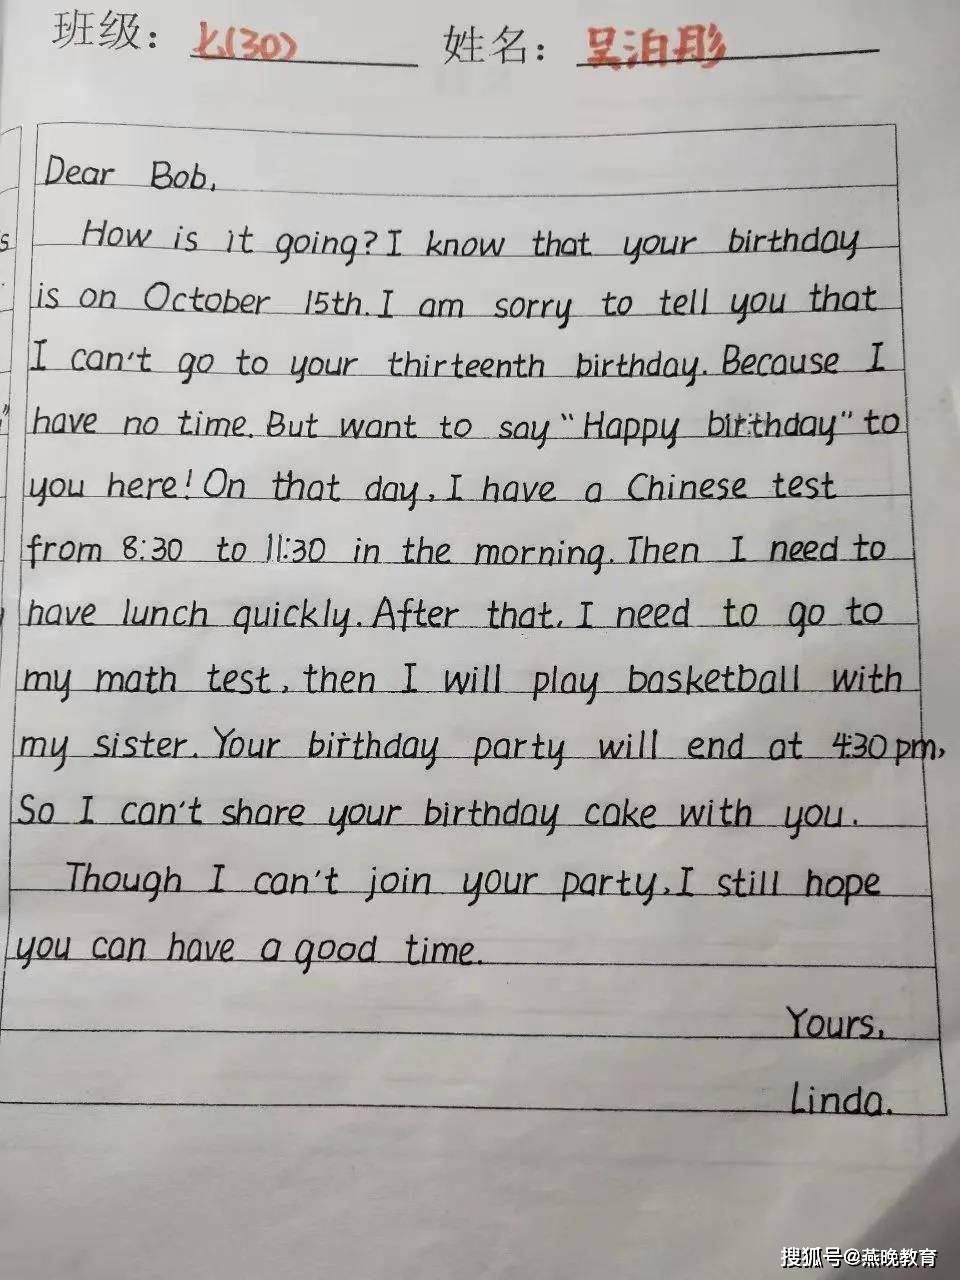 班级：七(30) 姓名：吴泊彤
Dear Bob,
How is it going? I know that your birthday
is on October 15th. I am sorry to tell you that
I can't go to your thirteenth birthday. Because I
have no time. But want to say "Happy birthday" to
you here! On that day, I have a Chinese test
from 8:30 to 11:30 in the morning. Then I need to
have lunch quickly. After that, I need to go to
my math test, then I will play basketball with
my sister. Your birthday party will end at 4:30 pm,
So I can't share your birthday cake with you.
Though I can't join your party, I still hope
you can have a good time.
Yours,
Linda.
搜狐号@燕晚教育